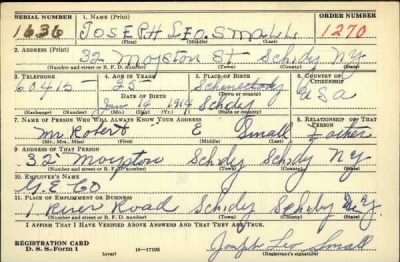 SERIAL NUMBER 1. NAME (Print) ORDER NUMBER
1636 JOSEPH LEO SMALL 1270
(First) (Middle) (Last)
2. ADDRESS (Print)
32 Moyston St Schdy NY
(Number and street or R. F. D. number) (Town) (County) (State)
3. TELEPHONE 4. AGE IN YEARS 5. PLACE OF BIRTH 6. COUNTRY OF CITIZENSHIP
60415 25 Schenectady
DATE OF BIRTH (Town or county)
Jan 14 1914 Schdy USA
(Exchange) (Number) (Mo.) (Day) (Yr.) (State or country)
7. NAME OF PERSON WHO WILL ALWAYS KNOW YOUR ADDRESS 8. RELATIONSHIP OF THAT PERSON
Mr. Robert E Small Father
(Mr., Mrs., Miss) (First) (Middle) (Last)
9. ADDRESS OF THAT PERSON
32 Moyston Schdy Schdy NY
(Number and street or R. F. D. number) (Town) (County) (State)
10. EMPLOYER'S NAME
G.E. Co
11. PLACE OF EMPLOYMENT OR BUSINESS
1 River Road Schdy N.Y.
(Number and street or R. F. D. number) (Town) (County) (State)
I AFFIRM THAT I HAVE VERIFIED ABOVE ANSWERS AND THAT THEY ARE TRUE.
REGISTRATION CARD
D. S. S. Form 1 (over) 16—17105 Joseph Leo Small
(Registrant's signature)